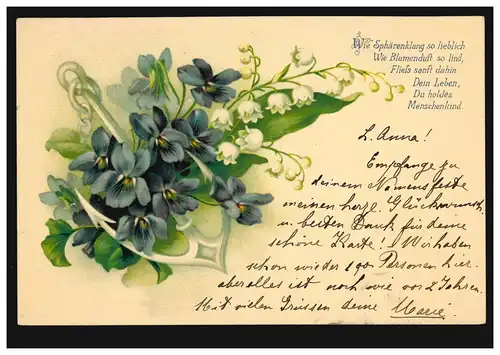 Wie Sphärenklang so lieblich
Wie Blumenduft so lind,
Fließ sanft dahin
Dein Leben,
Du holdes
Menschenkind.
L. Anna!
Empfange zu
deinem Namensfeste
meinen herzl. Glückwunsch
u. besten Dank für deine
schöne Karte! Wir haben
schon wieder 190 Personen hier.
aber alles ist noch wie vor 2 Jahren.
Mit vielen Grüssen deine Marie.